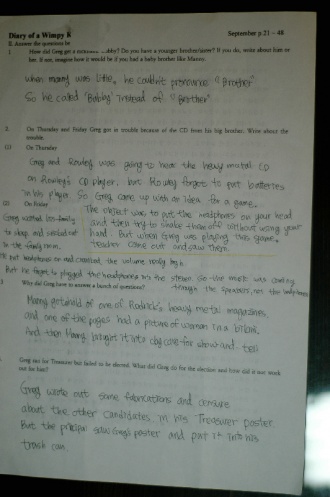 Diary of a Wimpy K
September p.21 – 48
B. Answer the questions
1. How did Greg get a nickname Bubby? Do you have a younger brother/sister? If you do, write about him or
her. If not, imagine how it would be if you had a baby brother like Manny.
When manny was little, he couldn't pronounce "Brother"
So he called "Bubby" instead of "Brother"
2. On Thursday and Friday Greg got in trouble because of the CD from his big brother. Write about the
trouble.
(1) On Thursday
Greg and Rowley was going to hear the heavy metal CD
on Rowley's CD player, but Rowley forgot to put batteries
in his player. So Greg came up with an idea for a game.
The object was to put the headphones on your head
and then try to shake them off without using your
hand. But when Greg was playing this game,
teacher come out and saw them.
(2) On Friday
Greg waited his family
to sleep and
in the family room.
put headphones on and cranked the volume really high
But he forgot to plugged the headphones into the stereo. So the music was coming
through the speakers, not the headphones
3 Why did Greg have to answer a bunch of questions?
Manny got ahold of one of Rodrick's heavy metal magazines,
and one of the pages had a picture of woman in a bikini.
And then Manny brought it into day care for show and tell
Greg ran for Treasurer but failed to be elected. What did Greg do for the election and how did it not work
out for him?
Greg wrote out some fabrications and censure
about the other candidates in his Treasurer poster.
But the principal saw Greg's poster and put it into his
trash can.